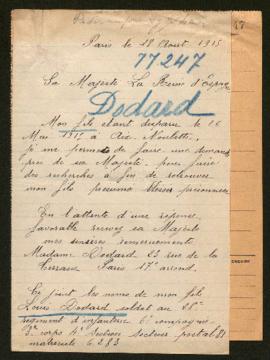 Paris le 28 Aout 1915
77247
Sa Majesté La Reine d'Espagne
Dodard
Mon fils etant disparu le 26
Mai 1915 a Aix-Noulette
je me permets de faire une demande
pres de sa Majesté pour faire
des recherches a fin de retrouver
mon fils presumé blessé prisonnier
En l'attente d'une reponse
favorable recevez sa Majesté
mes sincères remerciements
Madame Dodard 23 rue de la
Paris 17e arrond.
Ci joint les noms de mon fils
Louis Dodard soldat au
regiment d'infanterie 6e compagnie
3e corps secteur postal 81
matricule 6283